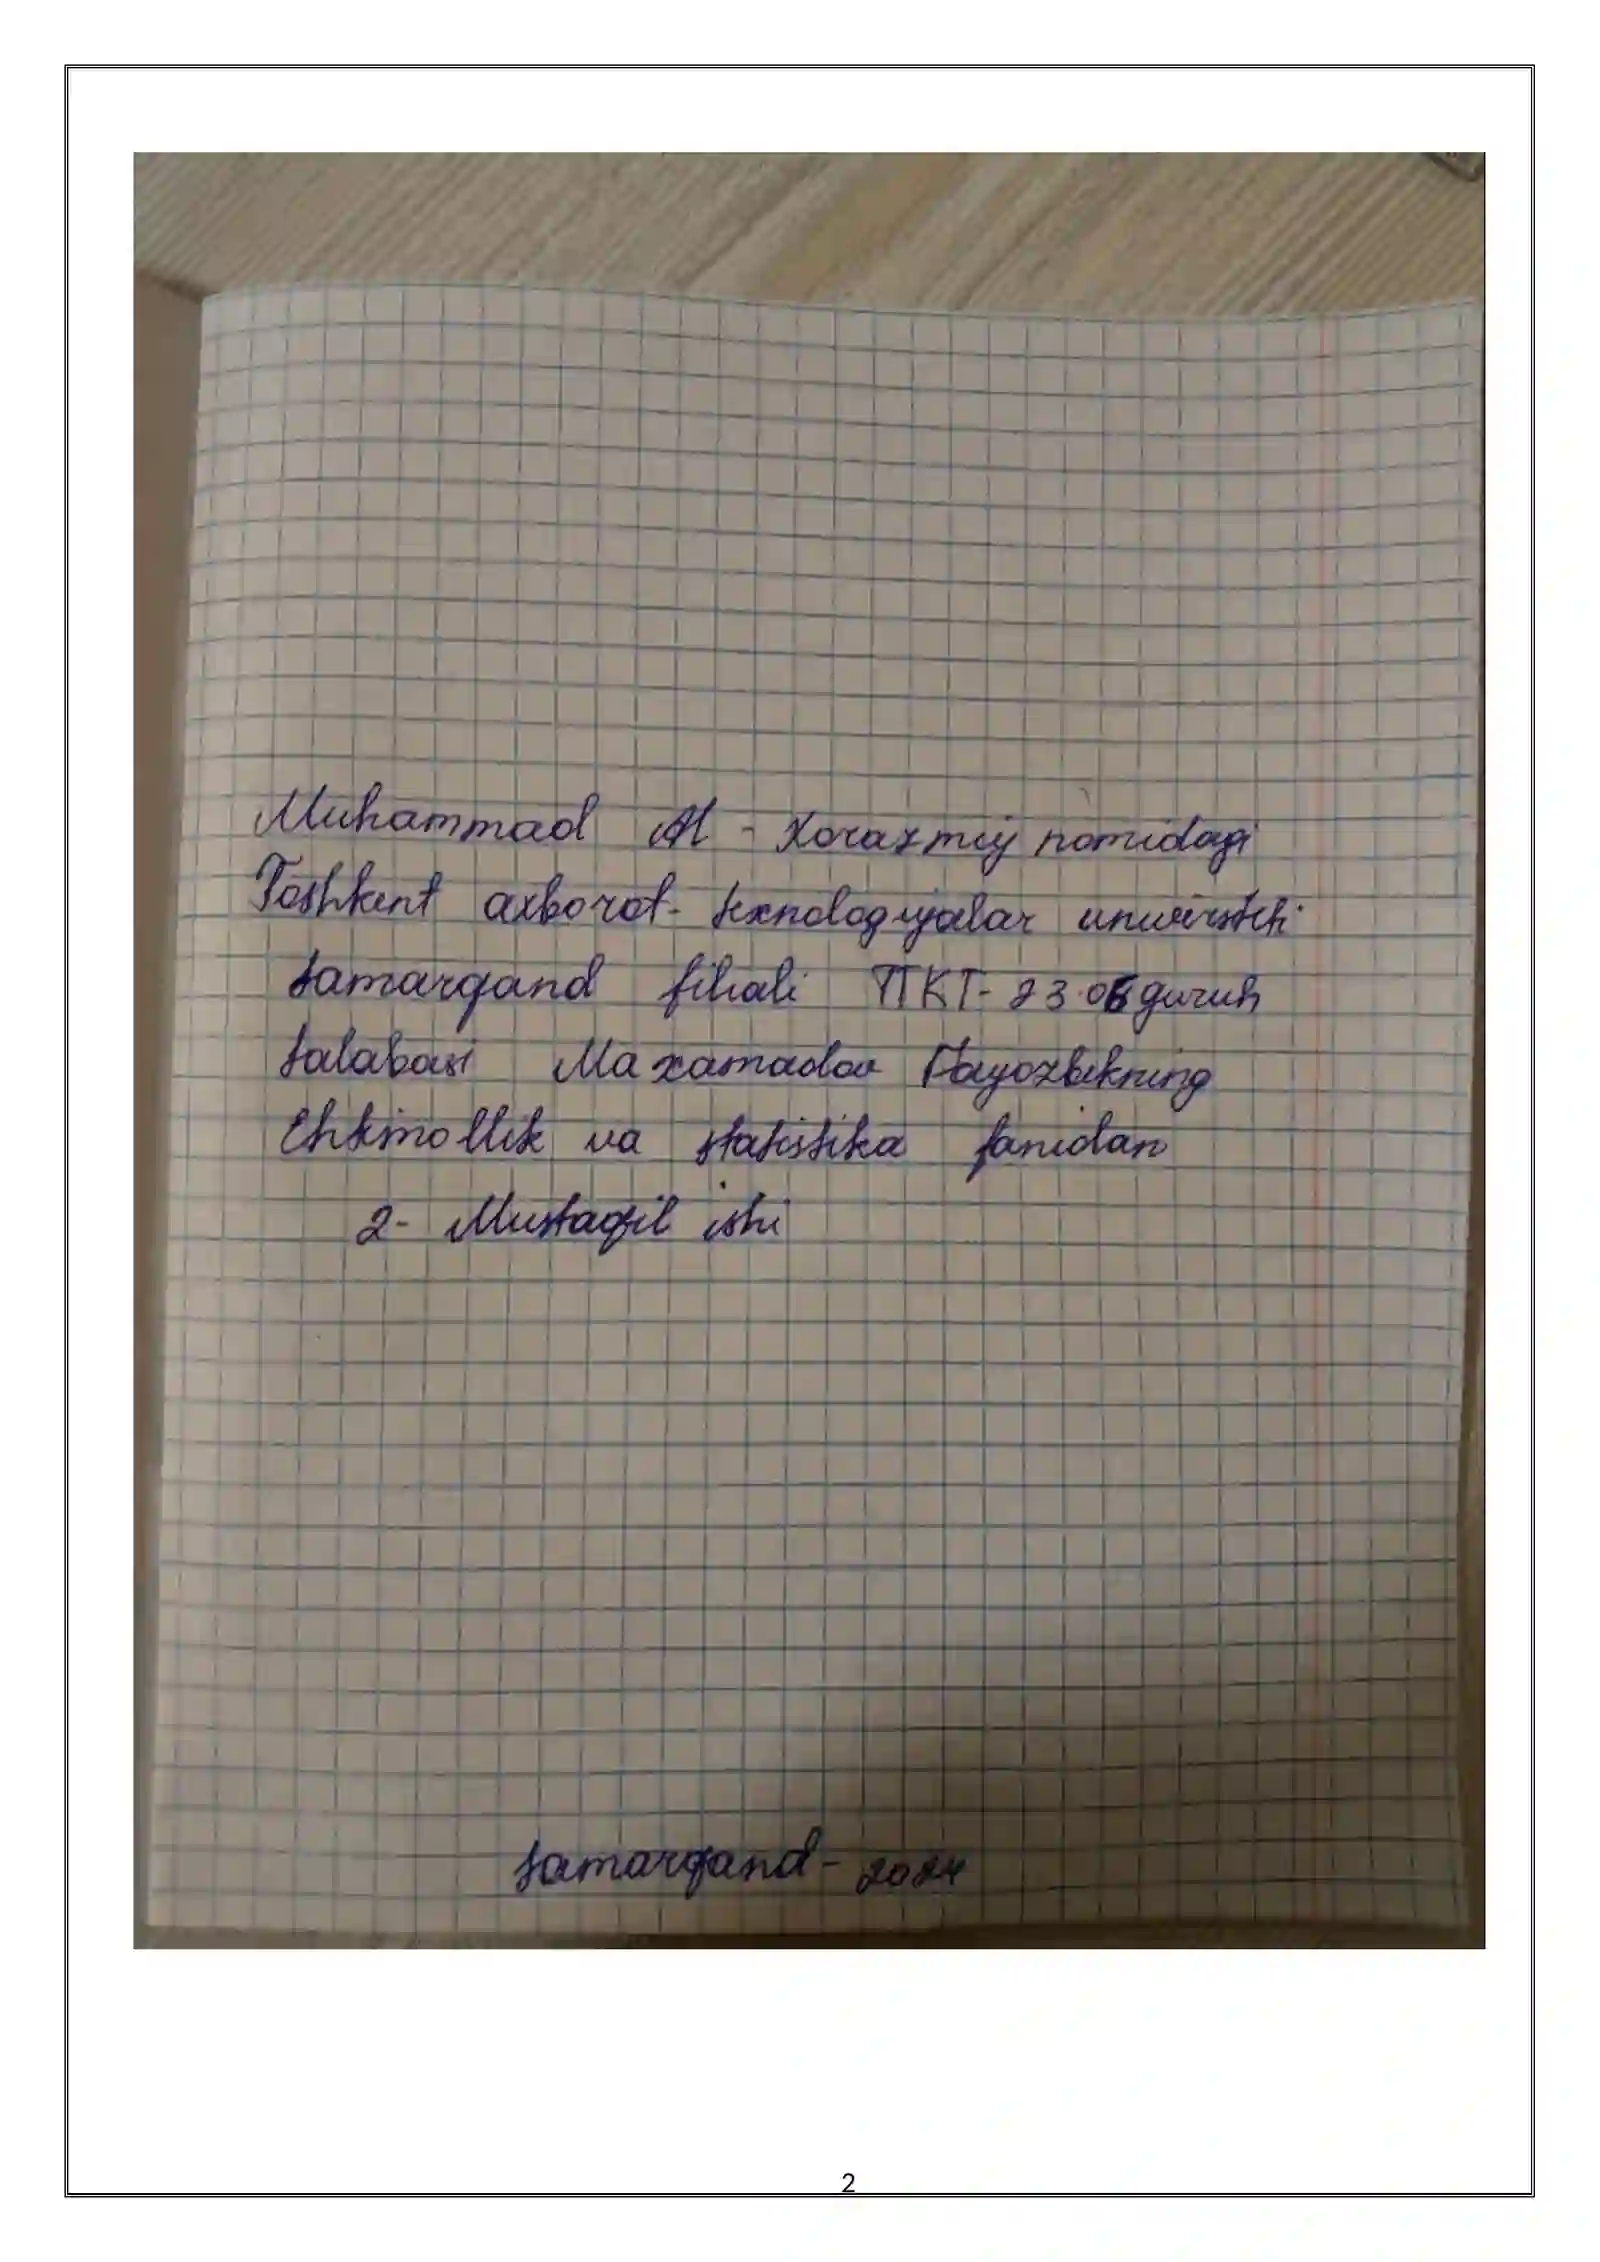 Muhammad Al - Xorazmiy nomidagi
Toshkent axborot- texnologiyalar universteti
Samarqand filiali TTKT- 23.06 guruh
talabasi Maxamadov Fayozbekning
Ehtimollik va statistika fanidan
2- Mustaqil ishi
Samarqand - 2024
2